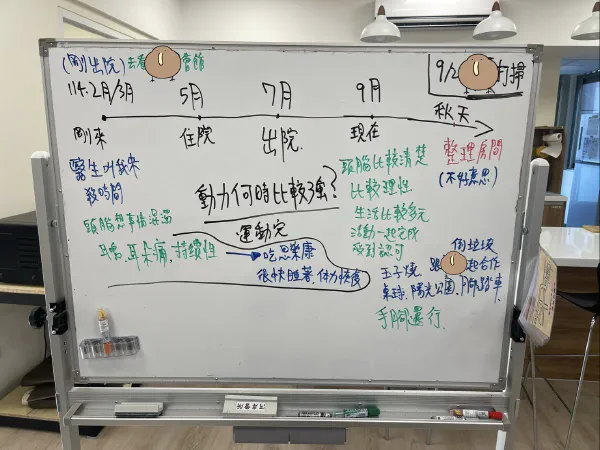 (剛出院) 去看 會館
9/2 打掃
114.2月/3月 5月 7月 9月 秋天
剛來 住院 出院 現在
整理房間
(不好意思)
醫生叫我來
殺時間
頭腦想事情混混
耳朵痛,持續性
動力何時比較強?
運動完
吃思樂康
很快睡著,体力恢復
頭腦比較清楚
比較理性
生活比較多元
活動一起完成
受到認可
倒垃圾
跟 一起合作
玉子燒
桌球,陽光公園,腳踏車
手腳還行